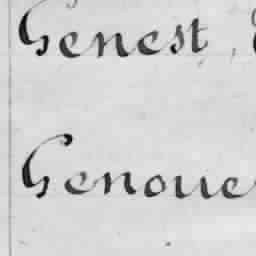 Genest,
Genoue